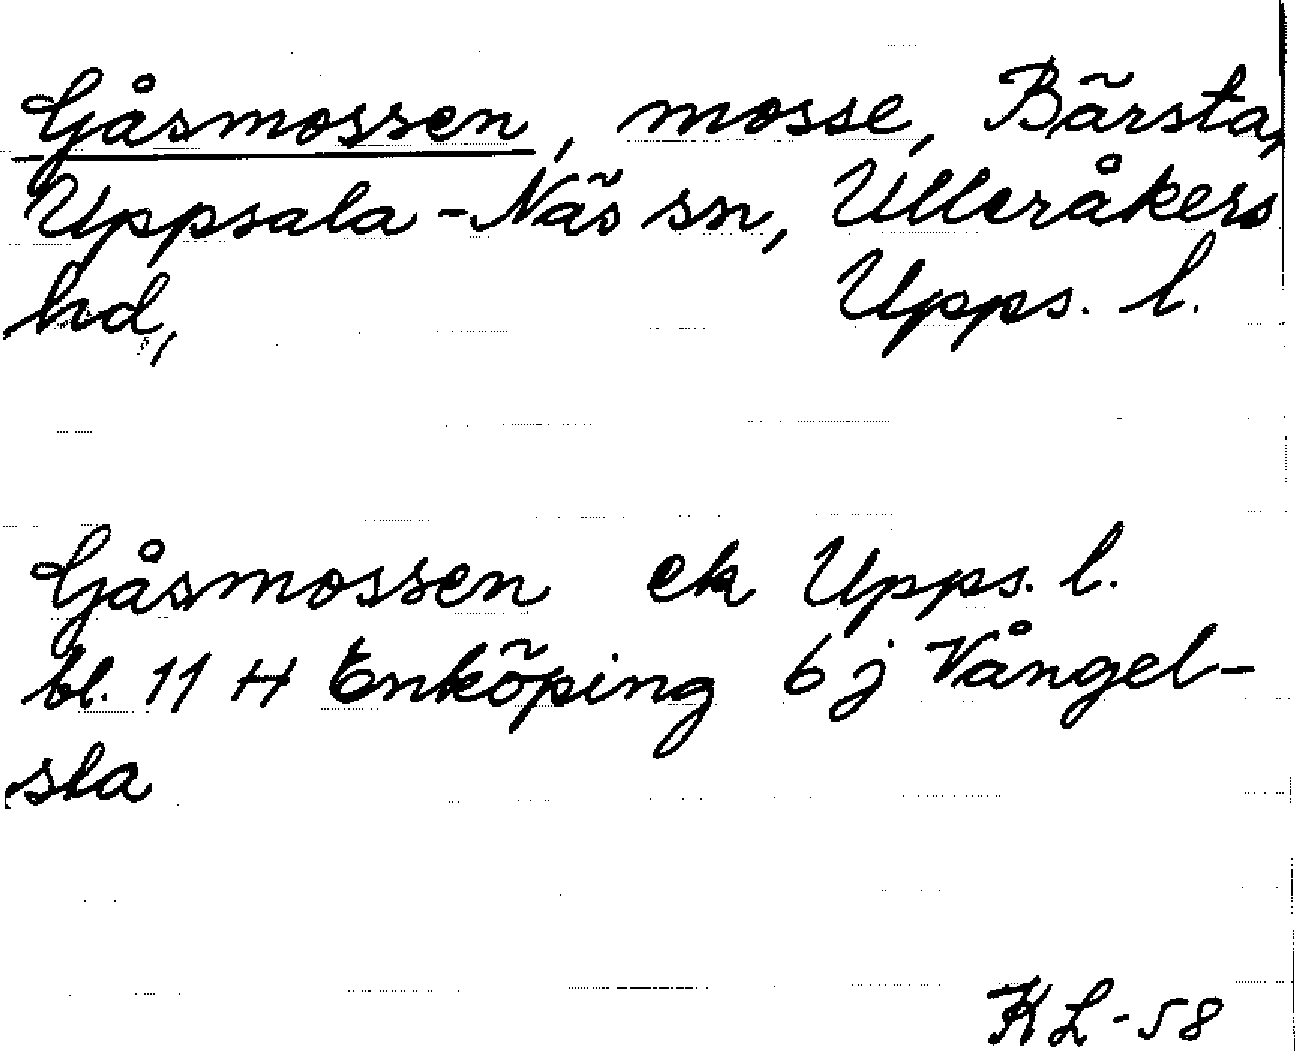 Gåsmossen, mosse, Bärsta,
Uppsala-Näs sn, Ulleråkers
hd, Upps. l.
Gåsmossen ek Upps. l.
bl. 11 H Enköping 6 j Vångel-
sta
KL-58